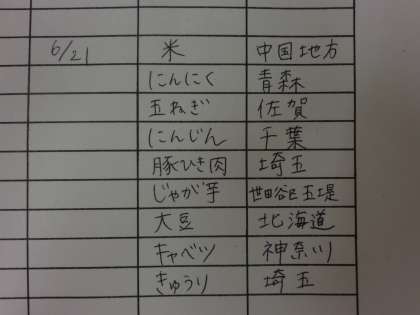 6/21 米 中国地方
にんにく 青森
玉ねぎ 佐賀
にんじん 千葉
豚ひき肉 埼玉
じゃが芋 世田谷区玉堤
大豆 北海道
キャベツ 神奈川
きゅうり 埼玉